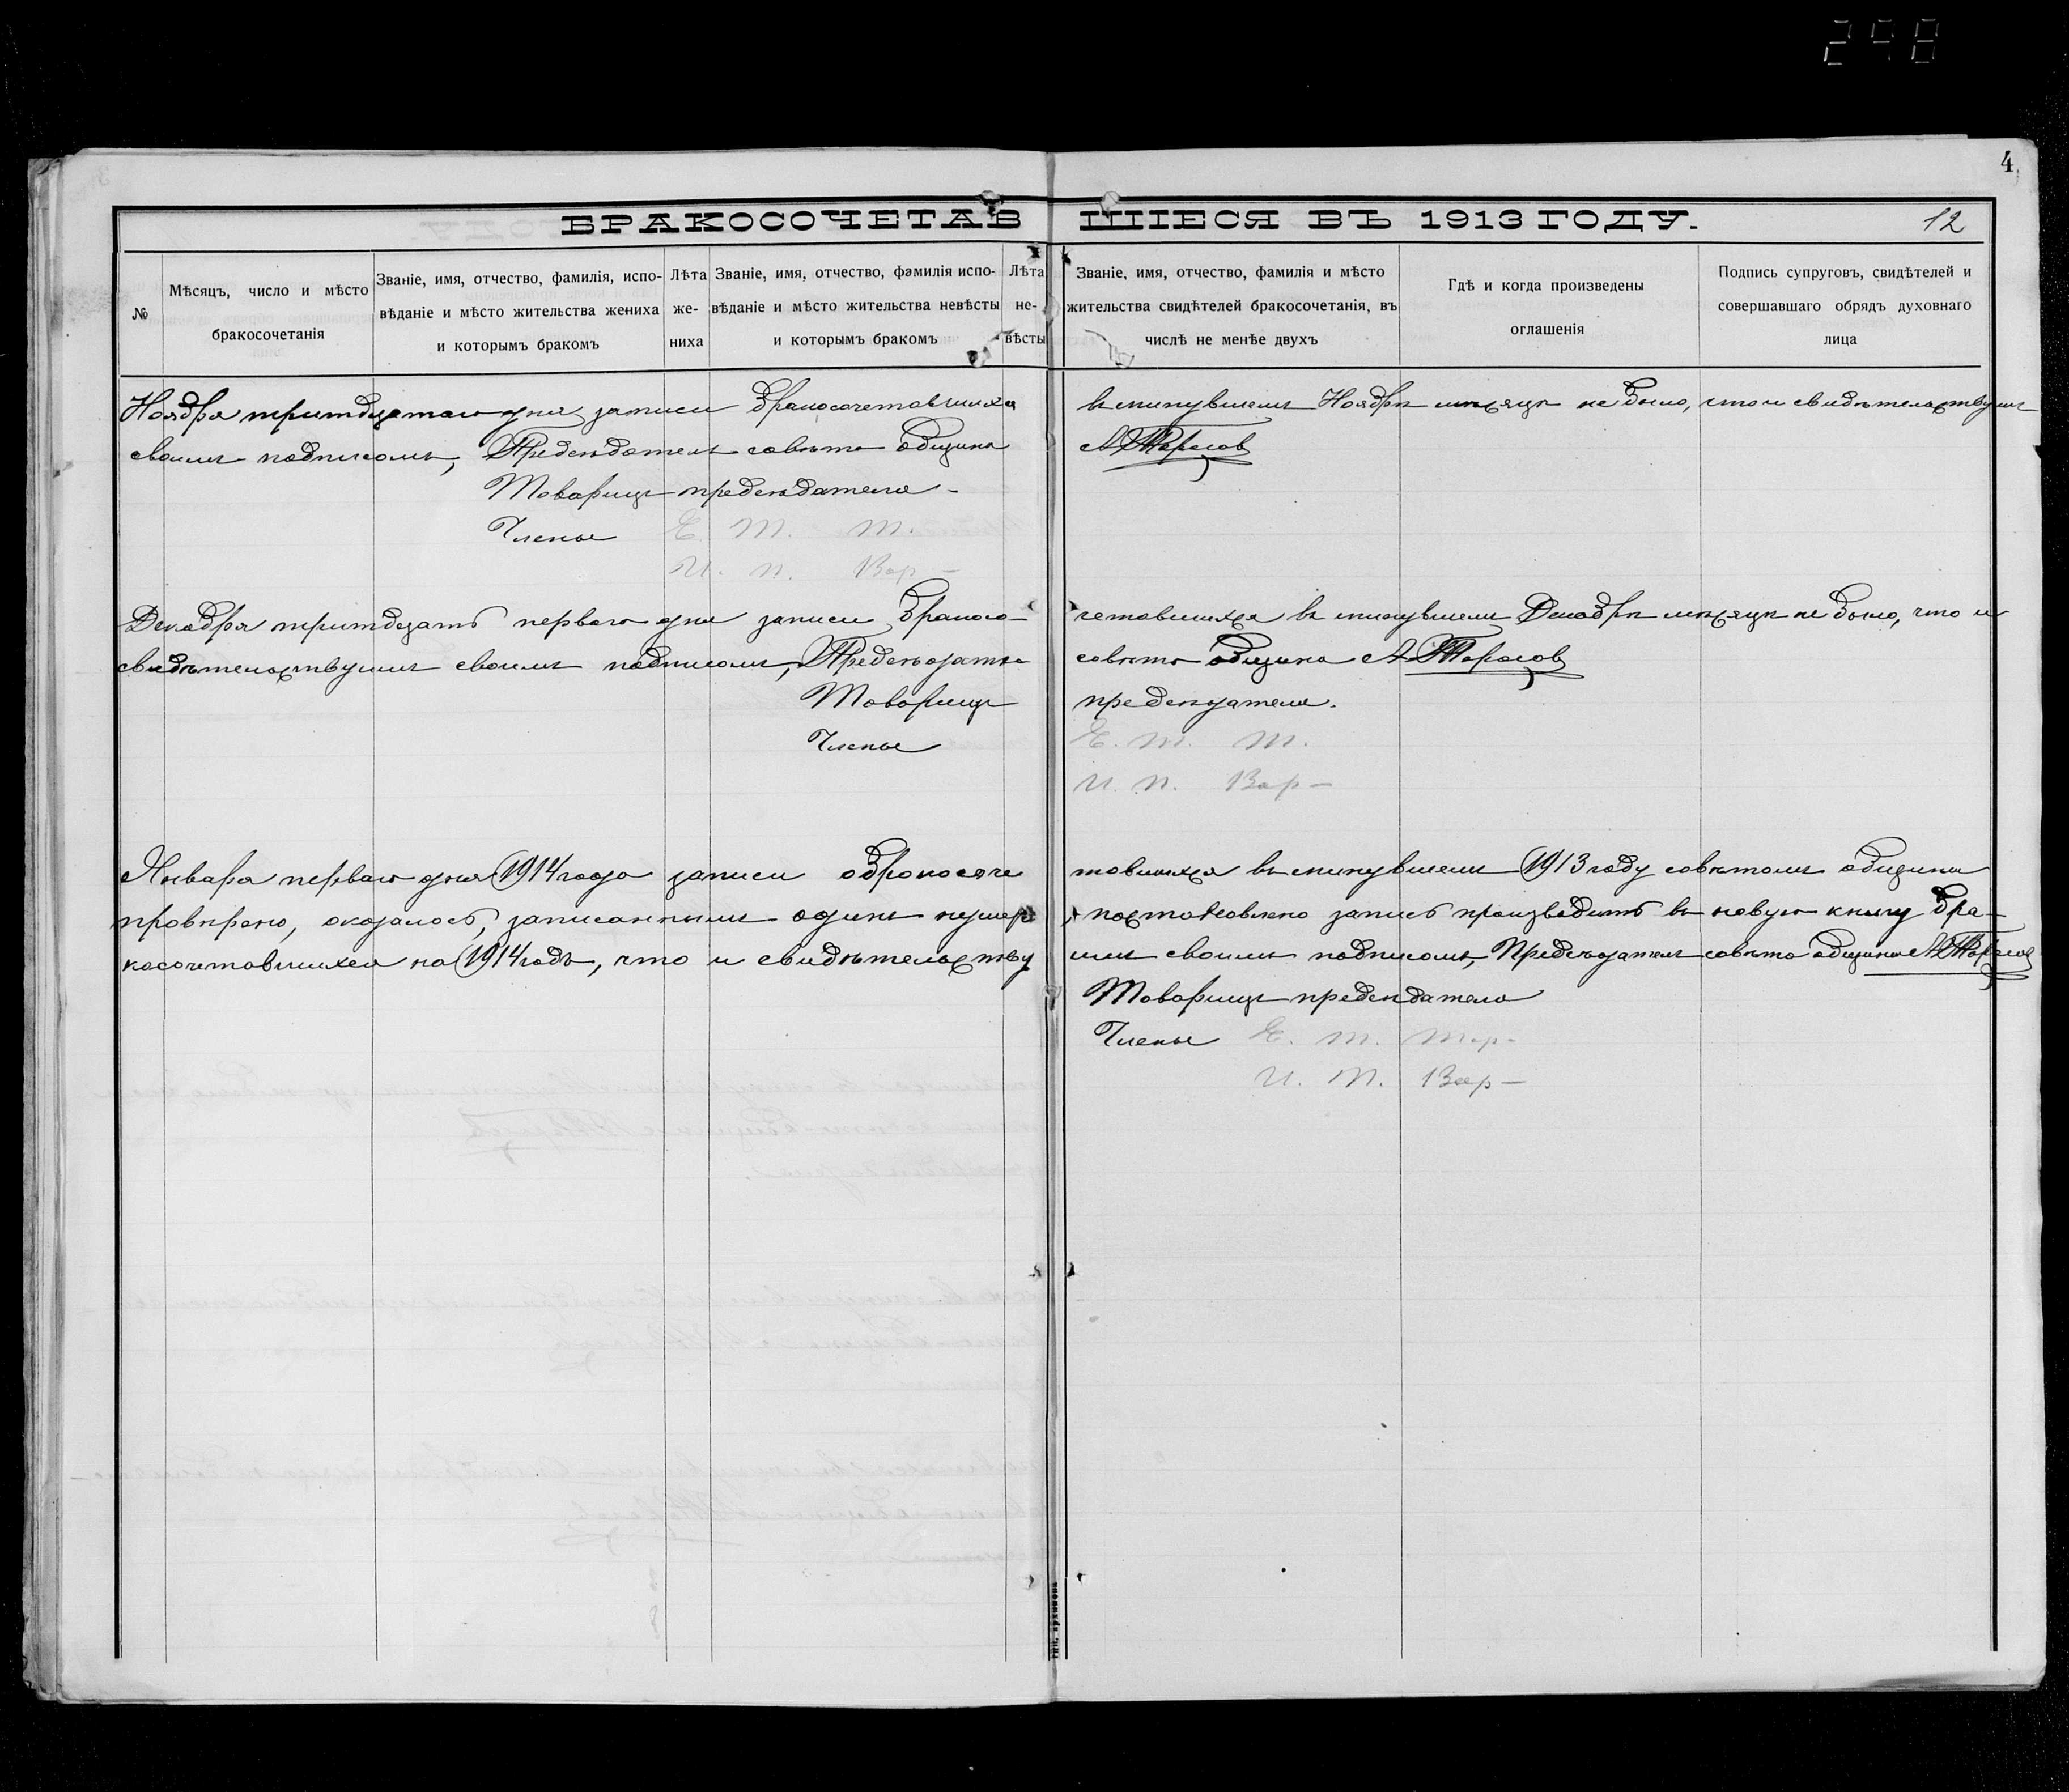 298
4
БРАКОСОЧЕТАВШІЕСЯ ВЪ 1913 ГОДУ.
12
№
Мѣсяцъ, число и мѣсто
бракосочетанія
Званіе, имя, отчество, фамилія, испо-
вѣданіе и мѣсто жительства жениха
и которымъ бракомъ
Лѣта
же-
ниха
Званіе, имя, отчество, фамилія испо-
вѣданіе и мѣсто жительства невѣсты
и которымъ бракомъ
Лѣта
не-
вѣсты
Званіе, имя, отчество, фамилія и мѣсто
жительства свидѣтелей бракосочетанія, въ
числѣ не менѣе двухъ
Гдѣ и когда произведены
оглашенія
Подпись супруговъ, свидѣтелей и
совершавшаго обрядъ духовнаго
лица
Ноября тритдцатаго дня записи бракосочетавшихся въ минувшемъ Ноябрѣ мѣсяцѣ не было, что и свидѣтельствуимъ
своимъ подписомъ, Предсѣдатель совѣта общины А. Тарасов
Товарищъ предсѣдателя -
Члены Е. Т. Т.
И. П. Вар -
Декабря тритдцать перваго дня записи бракосо-
четавшихся въ минувшемъ Декабрѣ мѣсяцѣ не было, что и
свидѣтельствуимъ своимъ подписомъ, Предсѣдатель
совѣта общины А. Тарасов
Товарищъ предсѣдателя.
Члены Е. Т. Т.
И. П. Вар -
Января перваго дня 1914 года записи обракосоче
тавшихся въ минувшемъ 1913 году совѣтомъ общины
провѣрено, оказалось, записаннымъ одинъ нумеръ,
постановлено запись производить въ новую книгу бра-
косочетавшихся на 1914 годъ, что и свидѣтельству
имъ своимъ подписомъ, Предсѣдатель совѣта общины А. Тарасов
Товарищъ предсѣдателя
Члены Е. Т. Тар -
И. П. Вар -